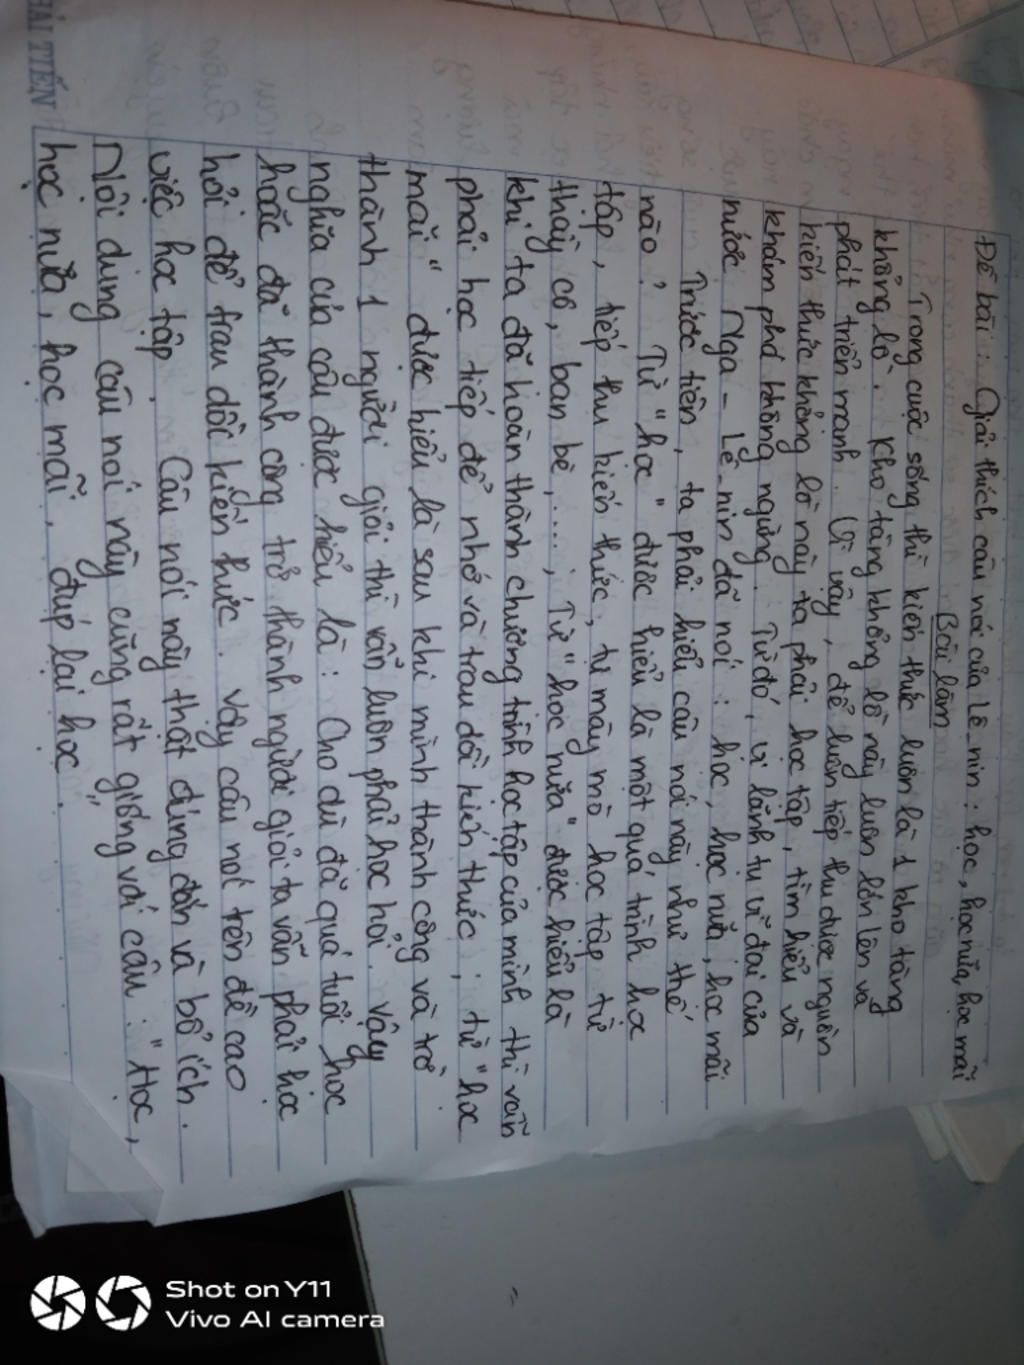 Đề bài: Giải thích câu nói của Lê-nin: học, học nữa, học mãi
Bài làm
Trong cuộc sống thì kiến thức luôn là 1 kho tàng
khổng lồ. Kho tàng khổng lồ này luôn lớn lên và
phát triển mạnh. Vì vậy, để luôn tiếp thu được nguồn
kiến thức khổng lồ này ta phải học tập, tìm hiểu và
khám phá không ngừng. Từ đó, vị lãnh tụ vĩ đại của
nước Nga - Lê-nin đã nói: học, học nữa, học mãi.
Trước tiên, ta phải hiểu câu nói này như thế
nào? Từ "học" được hiểu là một quá trình học
tập, tiếp thu kiến thức, tự mày mò học tập từ
thầy cô, bạn bè,....; Từ "học nữa" được hiểu là
khi ta đã hoàn thành chương trình học tập của mình thì vẫn
phải học tiếp để nhớ và trau dồi kiến thức; từ "học
mãi" được hiểu là sau khi mình thành công và trở
thành 1 người giỏi thì vẫn luôn phải học hỏi. Vậy
nghĩa của câu được hiểu là: Cho dù đã quá tuổi học
hoặc đã thành công trở thành người giỏi ta vẫn phải học
hỏi để trau dồi kiến thức. Vậy câu nói trên đề cao
việc học tập. Câu nói này thật đúng đắn và bổ ích.
Nội dung câu nói này cũng rất giống với câu: "Học,
học nữa, học mãi, đúp lại học.
HẢI TIẾN
Shot on Y11
Vivo AI camera